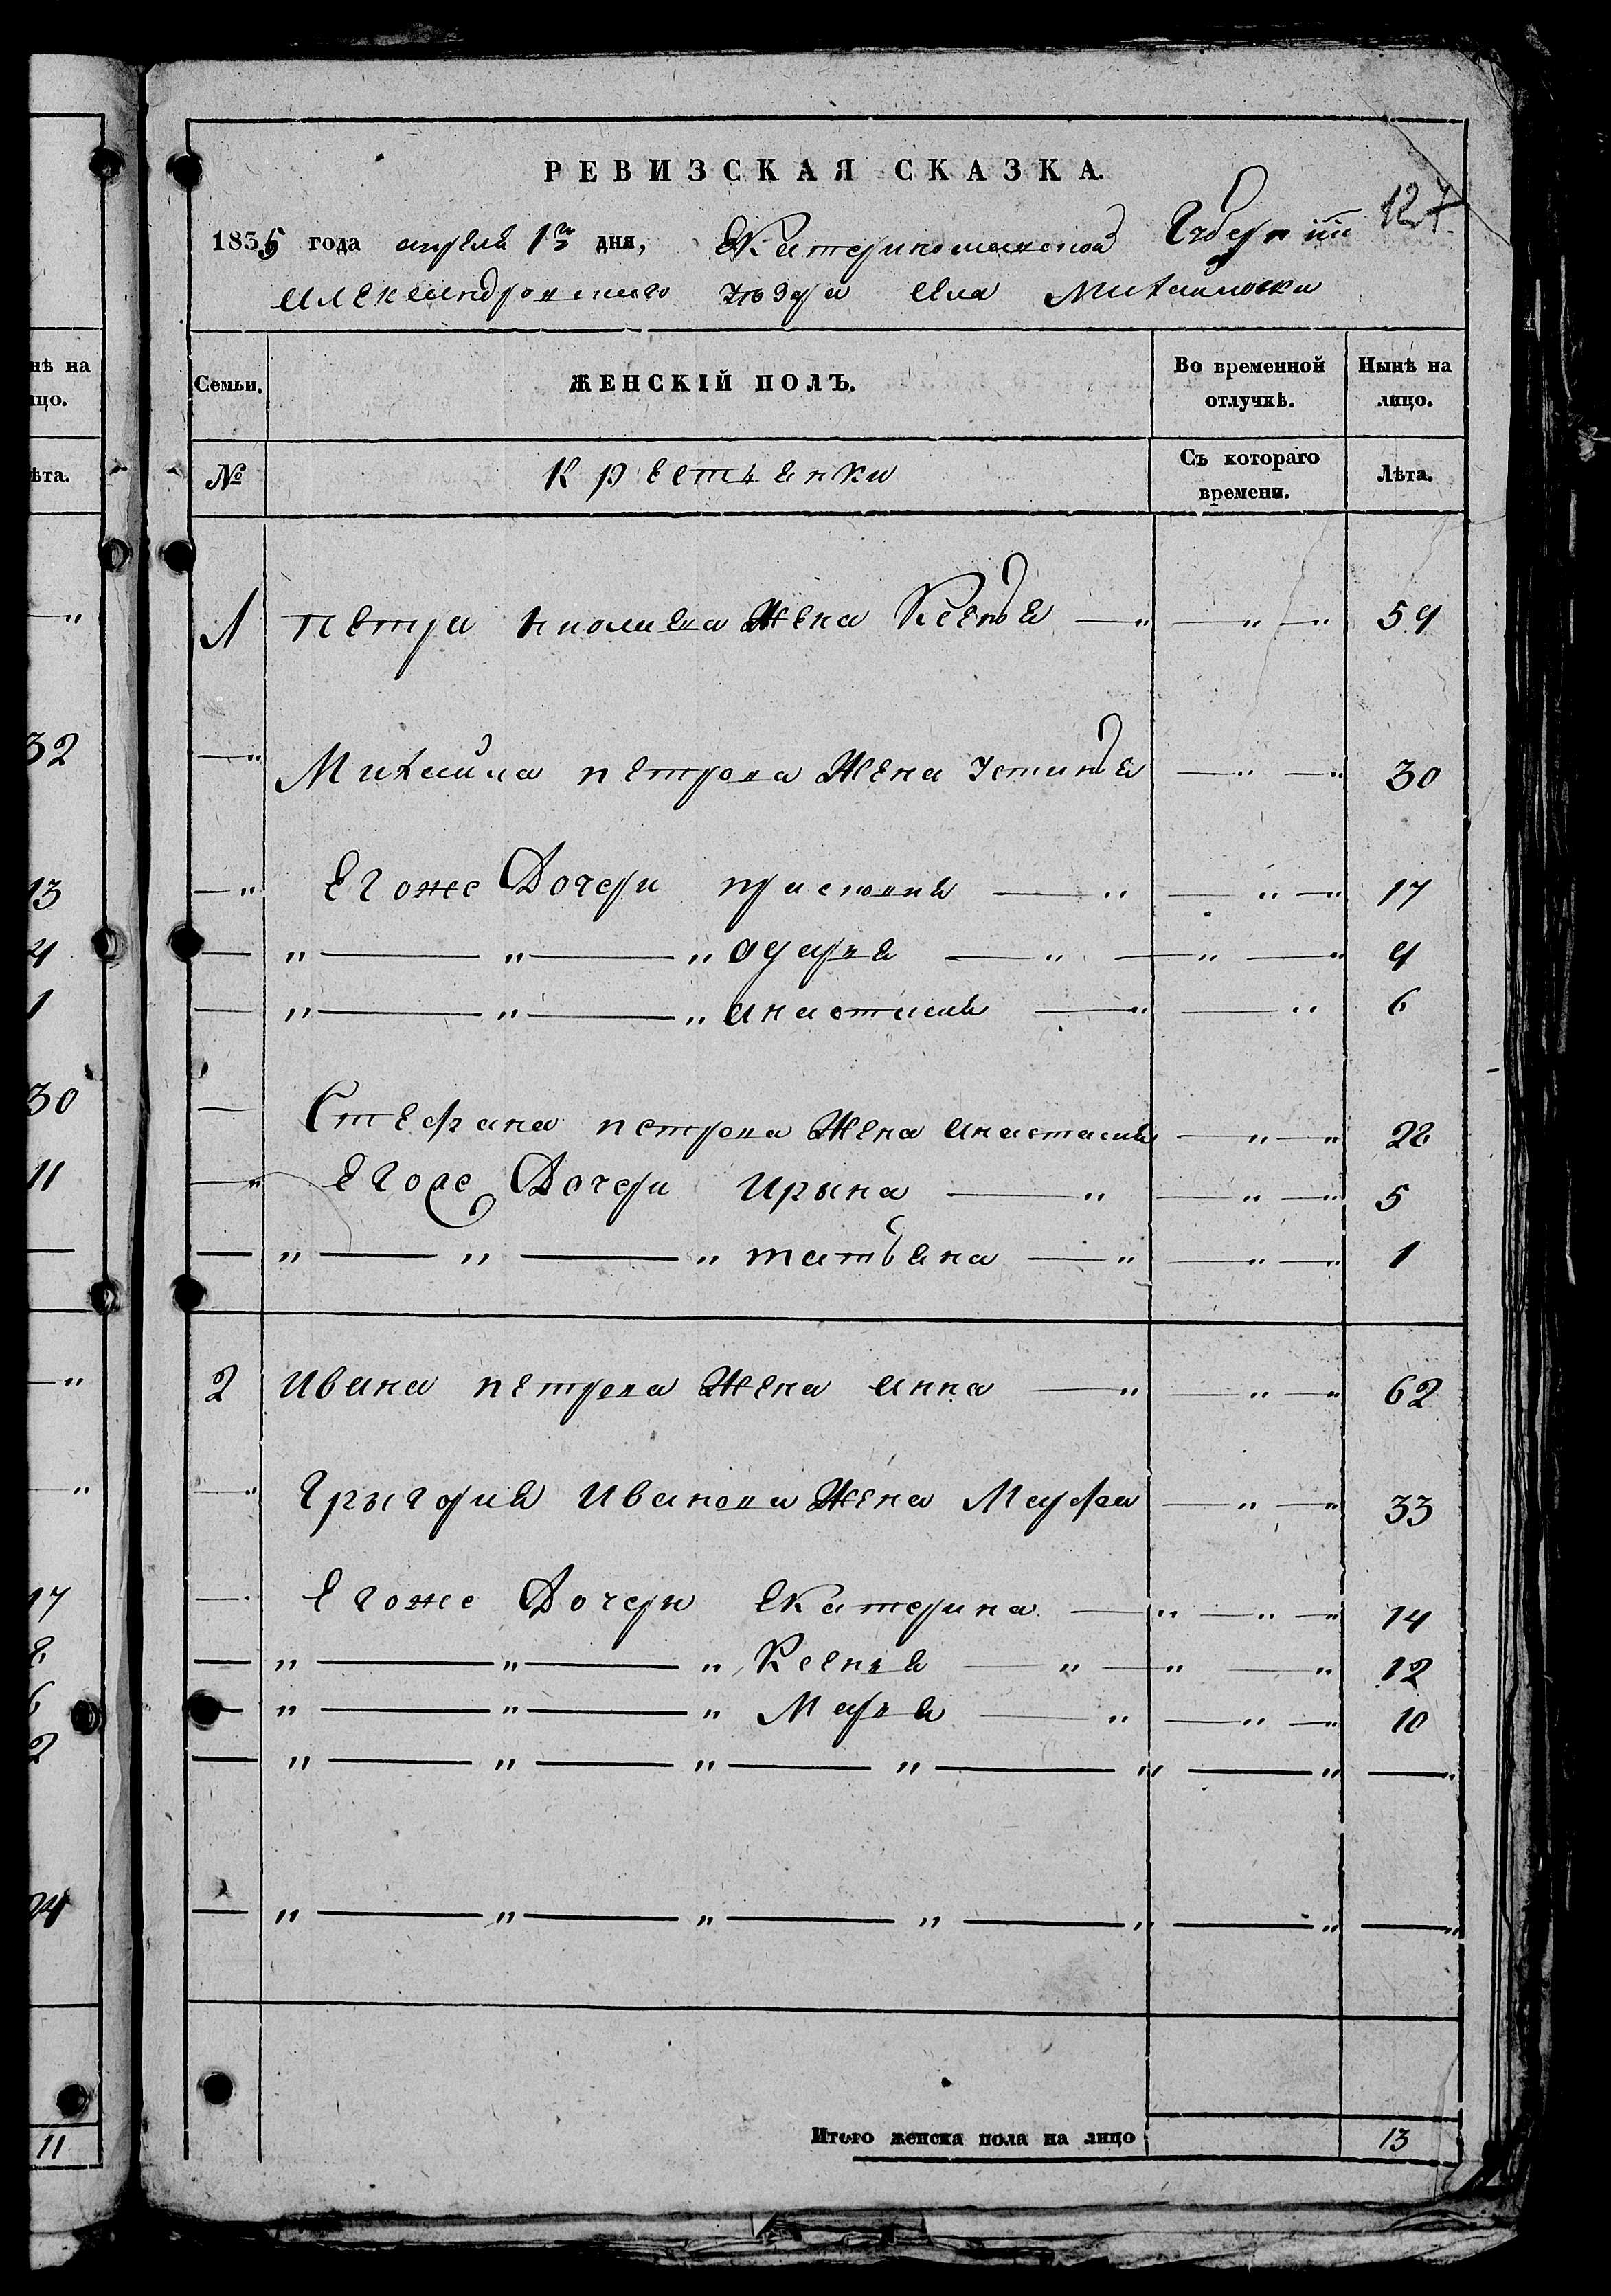 РЕВИЗСКАЯ СКАЗКА.
127
1835 года апреля 1го дня, Екатеринославской Губернiи
Александровского уезда села Михайловки
Семьи. ЖЕНСКIЙ ПОЛЪ. Во временной отлучкѣ. Нынѣ на лицо.
№ Крестьянки Съ котораго времени. Лѣта.
1 Петра жена Ксенья — „ — „ — „ 59
— „ Михайла петрова Жена Устинья — „ — „ 30
— „ Егоже Дочери присковья — „ — „ — „ 17
— „ — „ — „ одарья — „ — „ — „ 9
— „ — „ — „ анастасия — „ — „ 6
— Стефана петрова Жена анастасия — „ — „ 28
— „ Егоже Дочери Ирына — „ — „ — „ 5
— „ — „ — „ татьяна — „ — „ — „ 1
2 Ивана петрова Жена анна — „ — „ — „ 62
— „ Грыгория Иванова Жена Марфа — „ — „ 33
— Егоже Дочери Екатерина — „ — „ — „ 14
— „ — „ — „ Ксенья — „ — „ — „ 12
— „ — „ — „ Марья — „ — „ — „ 10
— „ — „ — „ — „ — „ — „ —
— „ — „ — „ — „ — „ — „ — „
Итого женска пола на лицо 13
нѣ на
цо.
ѣта.
32
13
4
1
30
11
17
8
6
2
24
11